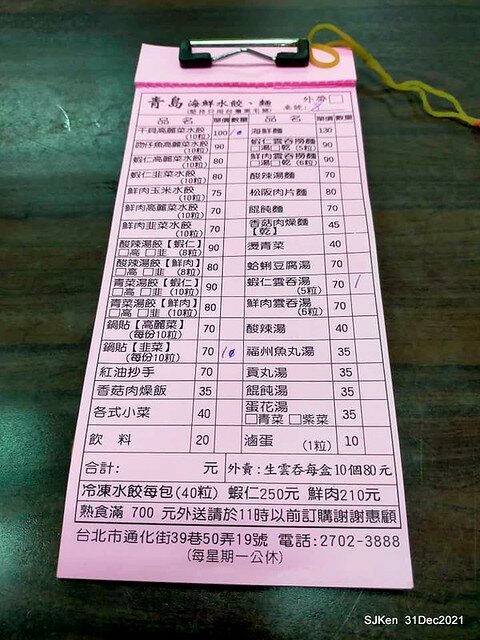 青島 海鮮水餃、麵
(堅持日用台灣黑毛豬)
外帶□
桌號: 8
品名 單價 數量 品名 單價 數量
干貝高麗菜水餃(10粒) 100 10 海鮮麵 130
吻仔魚高麗菜水餃(10粒) 90 蝦仁雲吞撈麵 □湯□乾(5粒) 90
蝦仁高麗菜水餃(10粒) 80 鮮肉雲吞撈麵 □湯□乾(6粒) 90
蝦仁韭菜水餃(10粒) 80 酸辣湯麵 70
鮮肉玉米水餃(10粒) 75 松阪肉片麵 80
鮮肉高麗菜水餃(10粒) 70 餛飩麵 70
鮮肉韭菜水餃(10粒) 70 香菇肉燥麵【乾】 45
酸辣湯餃【蝦仁】 □高 □韭 (8粒) 90 燙青菜 40
酸辣湯餃【鮮肉】 □高 □韭 (8粒) 80 蛤蜊豆腐湯 70
青菜湯餃【蝦仁】 □高 □韭 (10粒) 90 蝦仁雲吞湯(5粒) 70 /
青菜湯餃【鮮肉】 □高 □韭 (10粒) 80 鮮肉雲吞湯(6粒) 70
鍋貼【高麗菜】(每份10粒) 70 酸辣湯 40
鍋貼【韭菜】(每份10粒) 70 10 福州魚丸湯 35
紅油抄手 70 貢丸湯 35
香菇肉燥飯 35 餛飩湯 35
各式小菜 40 蛋花湯 □青菜 □紫菜 35
飲料 20 滷蛋(1粒) 10
合計: 元 外賣:生雲吞每盒10個80元
冷凍水餃每包(40粒) 蝦仁250元 鮮肉210元
熟食滿 700 元外送請於11時以前訂購謝謝惠顧
台北市通化街39巷50弄19號 電話:2702-3888
(每星期一公休)
SJKen 31Dec2021